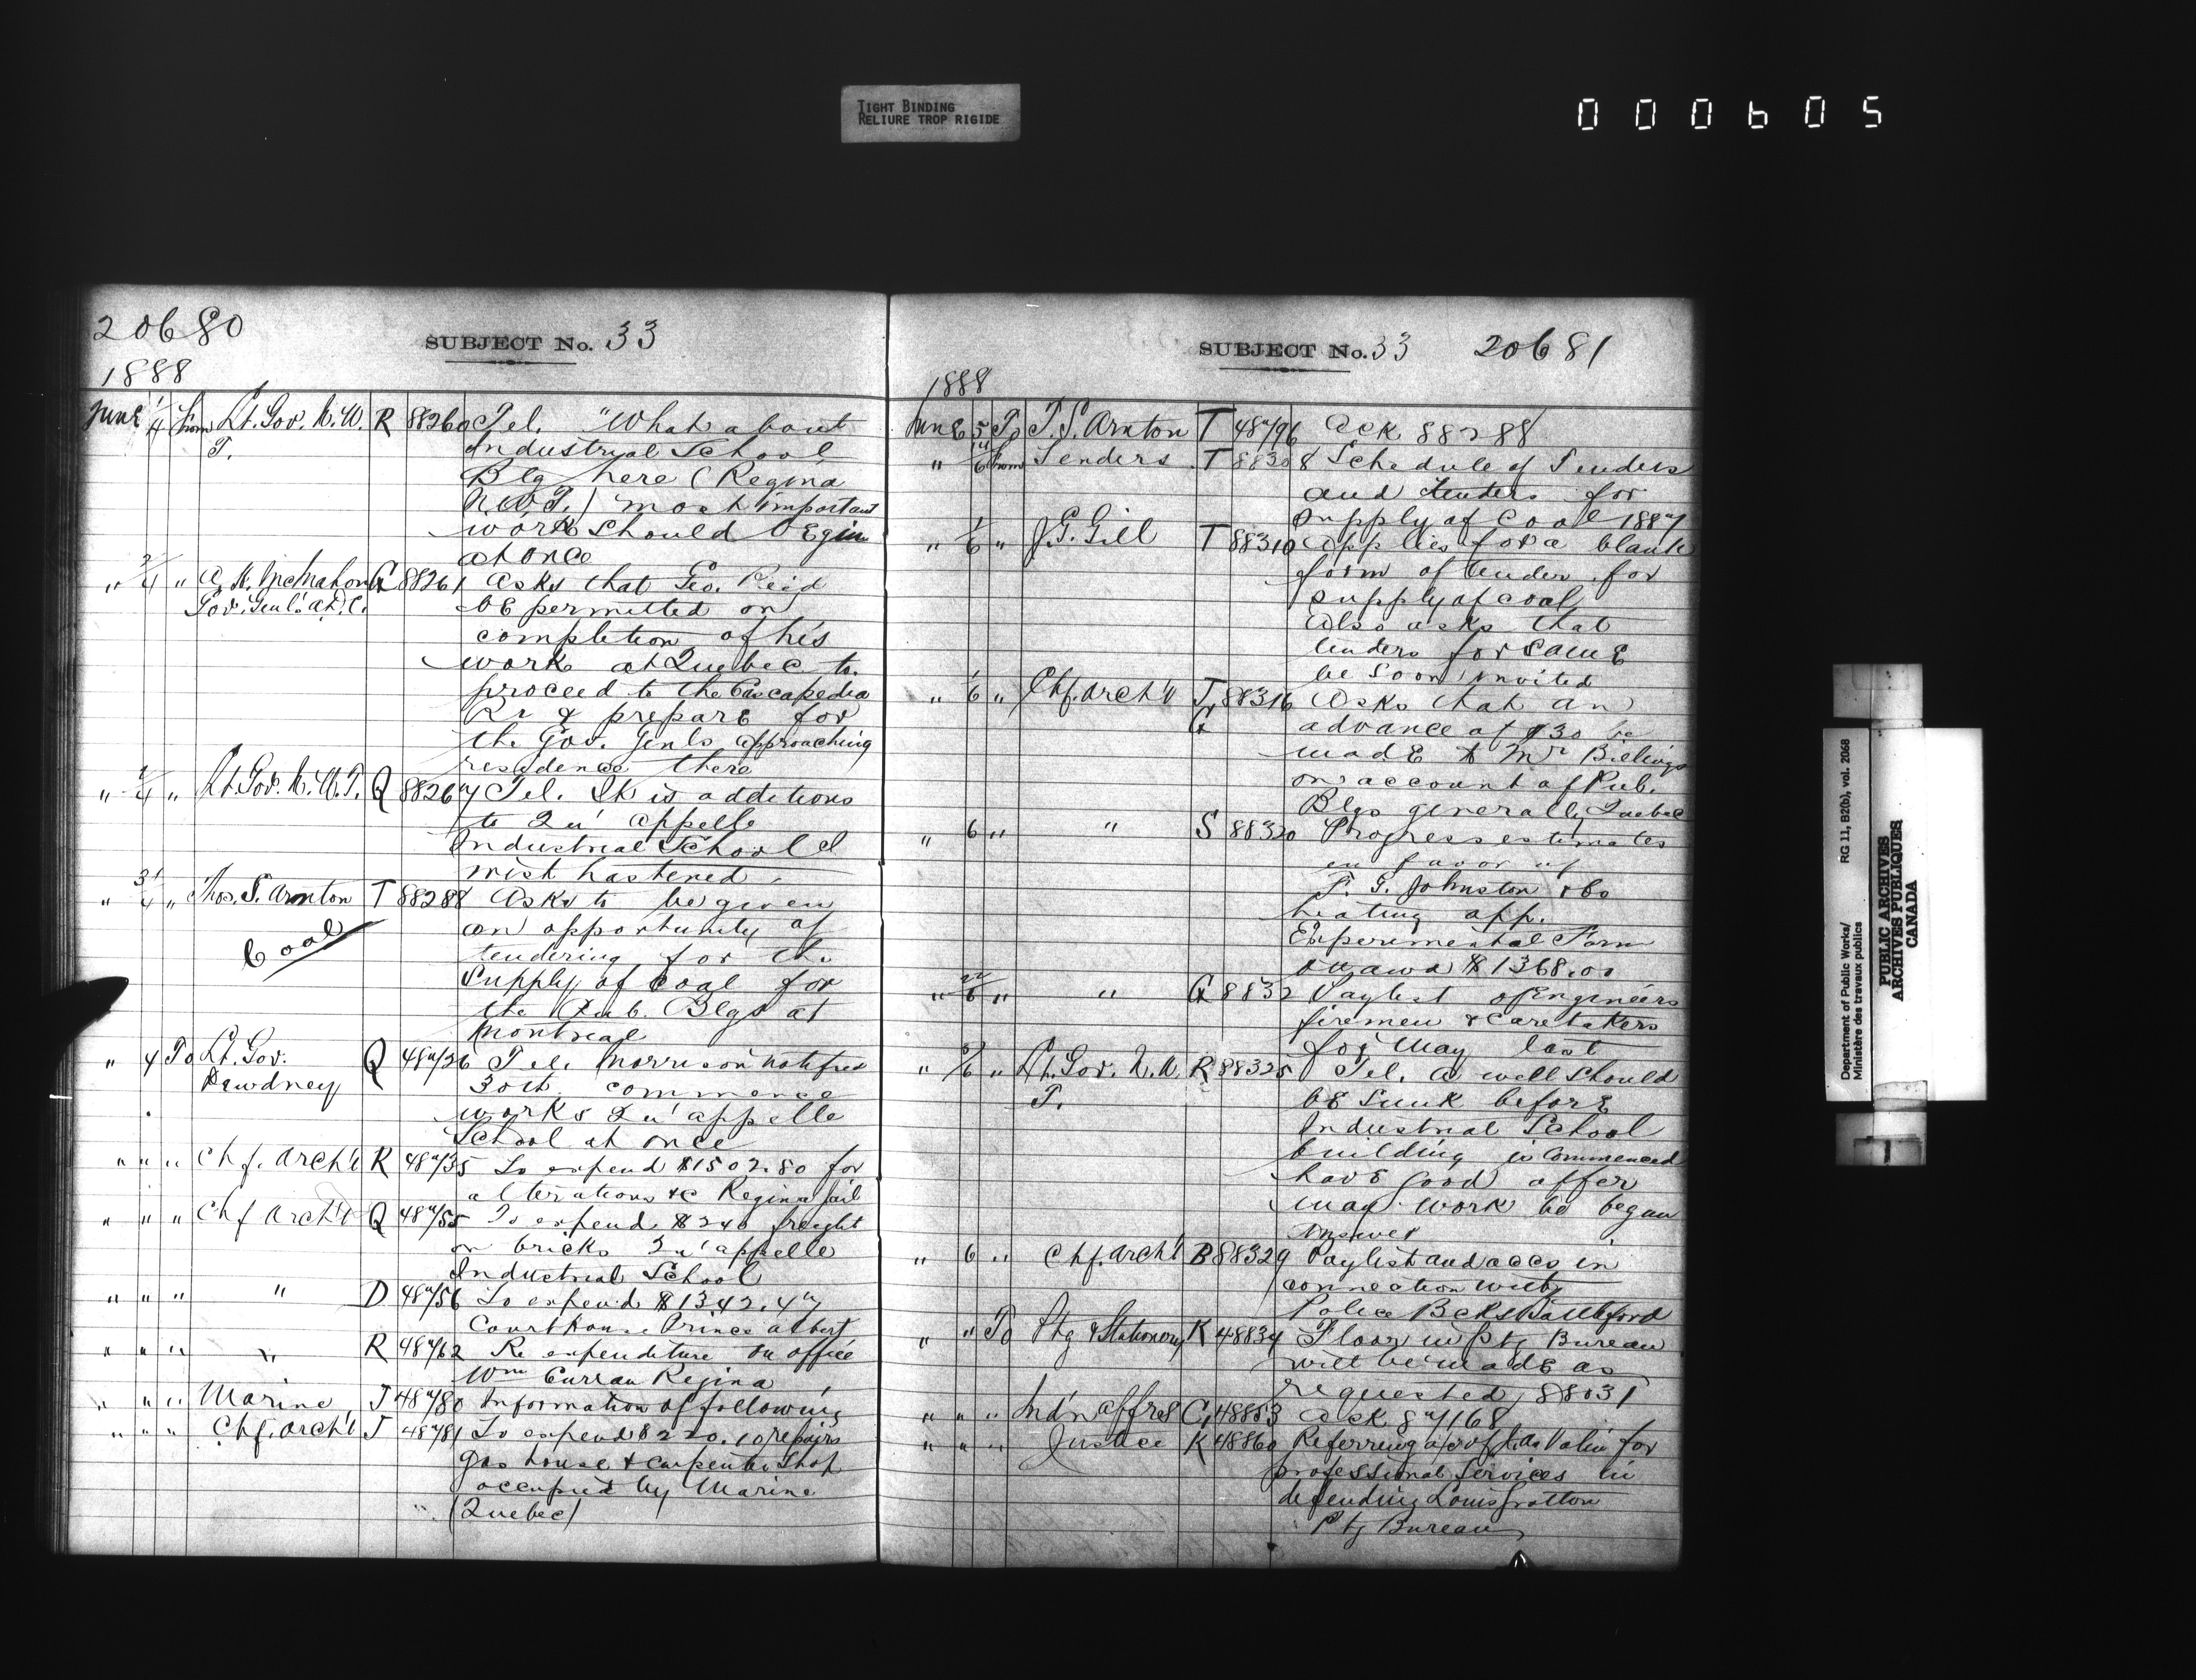 TIGHT BINDING
RELIURE TROP RIGIDE
000605
20680
SUBJECT No. 33
1888
June 1/4 from Lt. Gov. N.W. R 88260 Tel. "What about
T. Industrial School
Blg here (Regina
N.W.T.) most important
work should begin
at once
" 2/4 " A. H. McMahon G 88261 Asks that Geo. Reid
Gov. Genl. A.D.C. be permitted on
completion of his
work at Quebec to
proceed to the Cascapedia
Rr & prepare for
the Gov. Genls approaching
residence there
" 2/4 " Lt. Gov. N.W.T. Q 88267 Tel. It is additions
to Qu'appelle
Industrial School I
wish hastened
" 31/4 " Thos. S. Arnton T 88288 Asks to be given
Coal
an opportunity of
tendering for the
Supply of Coal for
the Pub. Blgs at
Montreal
" 4 To Lt. Gov. Q 48726 Tel. Morrison notified
Dewdney 30th commence
works Qu'appelle
School at once
" " " Chf. Arch't R 48735 To expend $1502.80 for
alterations &c Regina Jail
" " " Chf Arch't Q 48755 To expend $240 freight
on bricks Qu'appelle
Industrial School
" " " " D 48756 To expend $1342.47
Court house Prince Albert
" " " " R 48762 Re expenditure on office
Wm Curran Regina
" " " Marine J 48780 Information of following
" " " Chf. Arch't J 48781 To expend $220.10 repairs
Gas house & carpenter Shop
occupied by Marine
(Quebec)
SUBJECT No. 33 20681
1888
June 5 To T. S. Arnton T 48796 Ack 88288
" 6 from Tenders T 88308 Schedule of Tenders
and tenders for
supply of Coal 1887
" 1/6 " J. G. Gill T 88310 Applies for a blank
form of tender for
supply of coal
Also asks that
tenders for same
be soon invited
" 1/6 " Chf. Arch't J 88316 Asks that an
G advance of $30 be
made to Mr Billings
on account of Pub.
Blgs generally Quebec
" 6 " " S 88320 Progress estimates
in favor of
F. G. Johnston &Co
heating app.
Experimental Farm
Ottawa $1368.00
" 6 " " G 8832 Paylist of Engineers
firemen & Caretakers
for May last
" 6 " Lt. Gov. N.W. R 88325 Tel. A well should
T. be sunk before
Industrial School
building is commenced
have good offer
may work be began
Answer
" 6 " Chf. Arch't B 88329 Paylist and accs in
connection with
Police Bcks Battleford
" " To Ptg & Stationery K 48834 Floor in Ptg Bureau
will be made as
requested, 88031
" " " Ind'n Affrs C 48853 Ack 87168
" " " Justice K 48860 Referring a/c of Valin for
professional Services in
defending Louis Gratton
Ptg Bureau
Department of Public Works/ RG 11, B2(b), vol. 2068
Ministère des travaux publics
PUBLIC ARCHIVES
ARCHIVES PUBLIQUES
CANADA